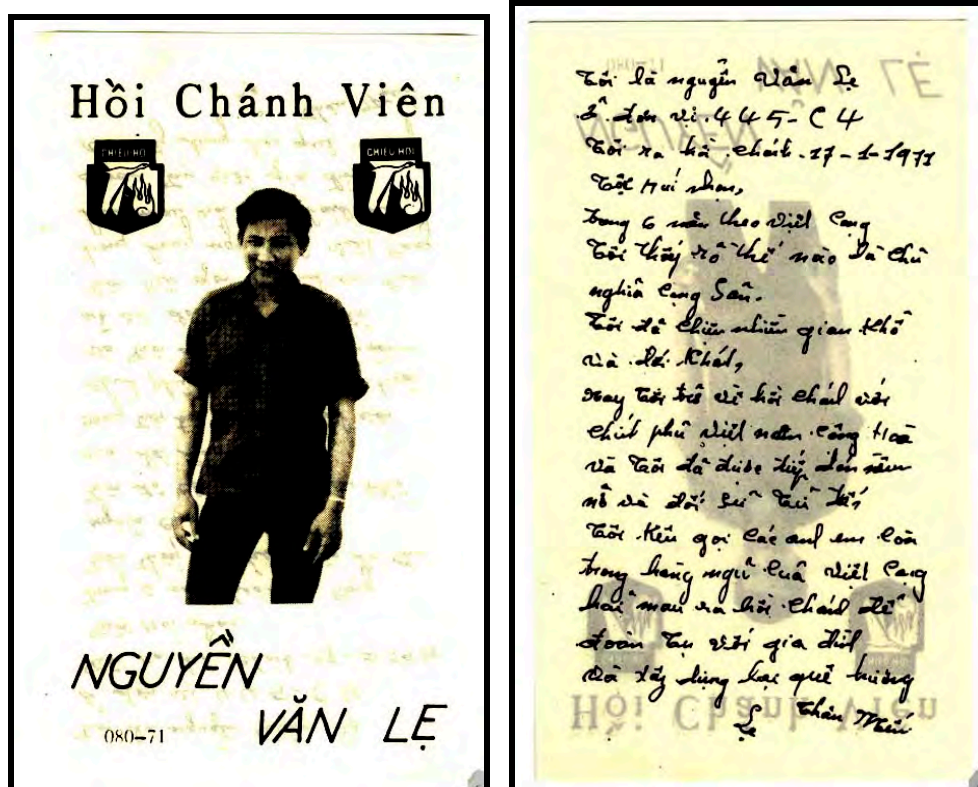 Hồi Chánh Viên
CHIÊU HỒI
CHIÊU HỒI
NGUYỄN
VĂN LẸ
080–71
Tôi là nguyễn Văn Lẹ
Ở đơn vi. 445 - C 4
Tôi ra hồi chánh. 17-1-1971
Tại
trong 6 năm theo Việt Cộng
Tôi thấy rõ thế nào là chủ
nghĩa Cộng Sản.
Tôi đã chiụ nhiều gian khổ
và đói khát,
nay tôi trở về hồi chánh với
chính phủ Việt nam Cộng Hoà
và tôi đã được tiếp đón nồng
và đối sử tử tế,
Tôi kêu gọi các anh em còn
trong hàng ngũ của Việt Cộng
hãy mau ra hồi chánh để
đoàn tụ với gia đình
và xây dựng lại quê hương
Thân Mến
Lẹ